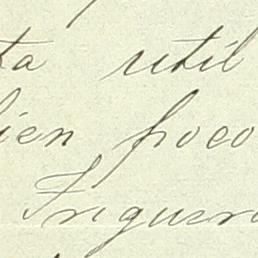 ta util
ien poco
Friguero